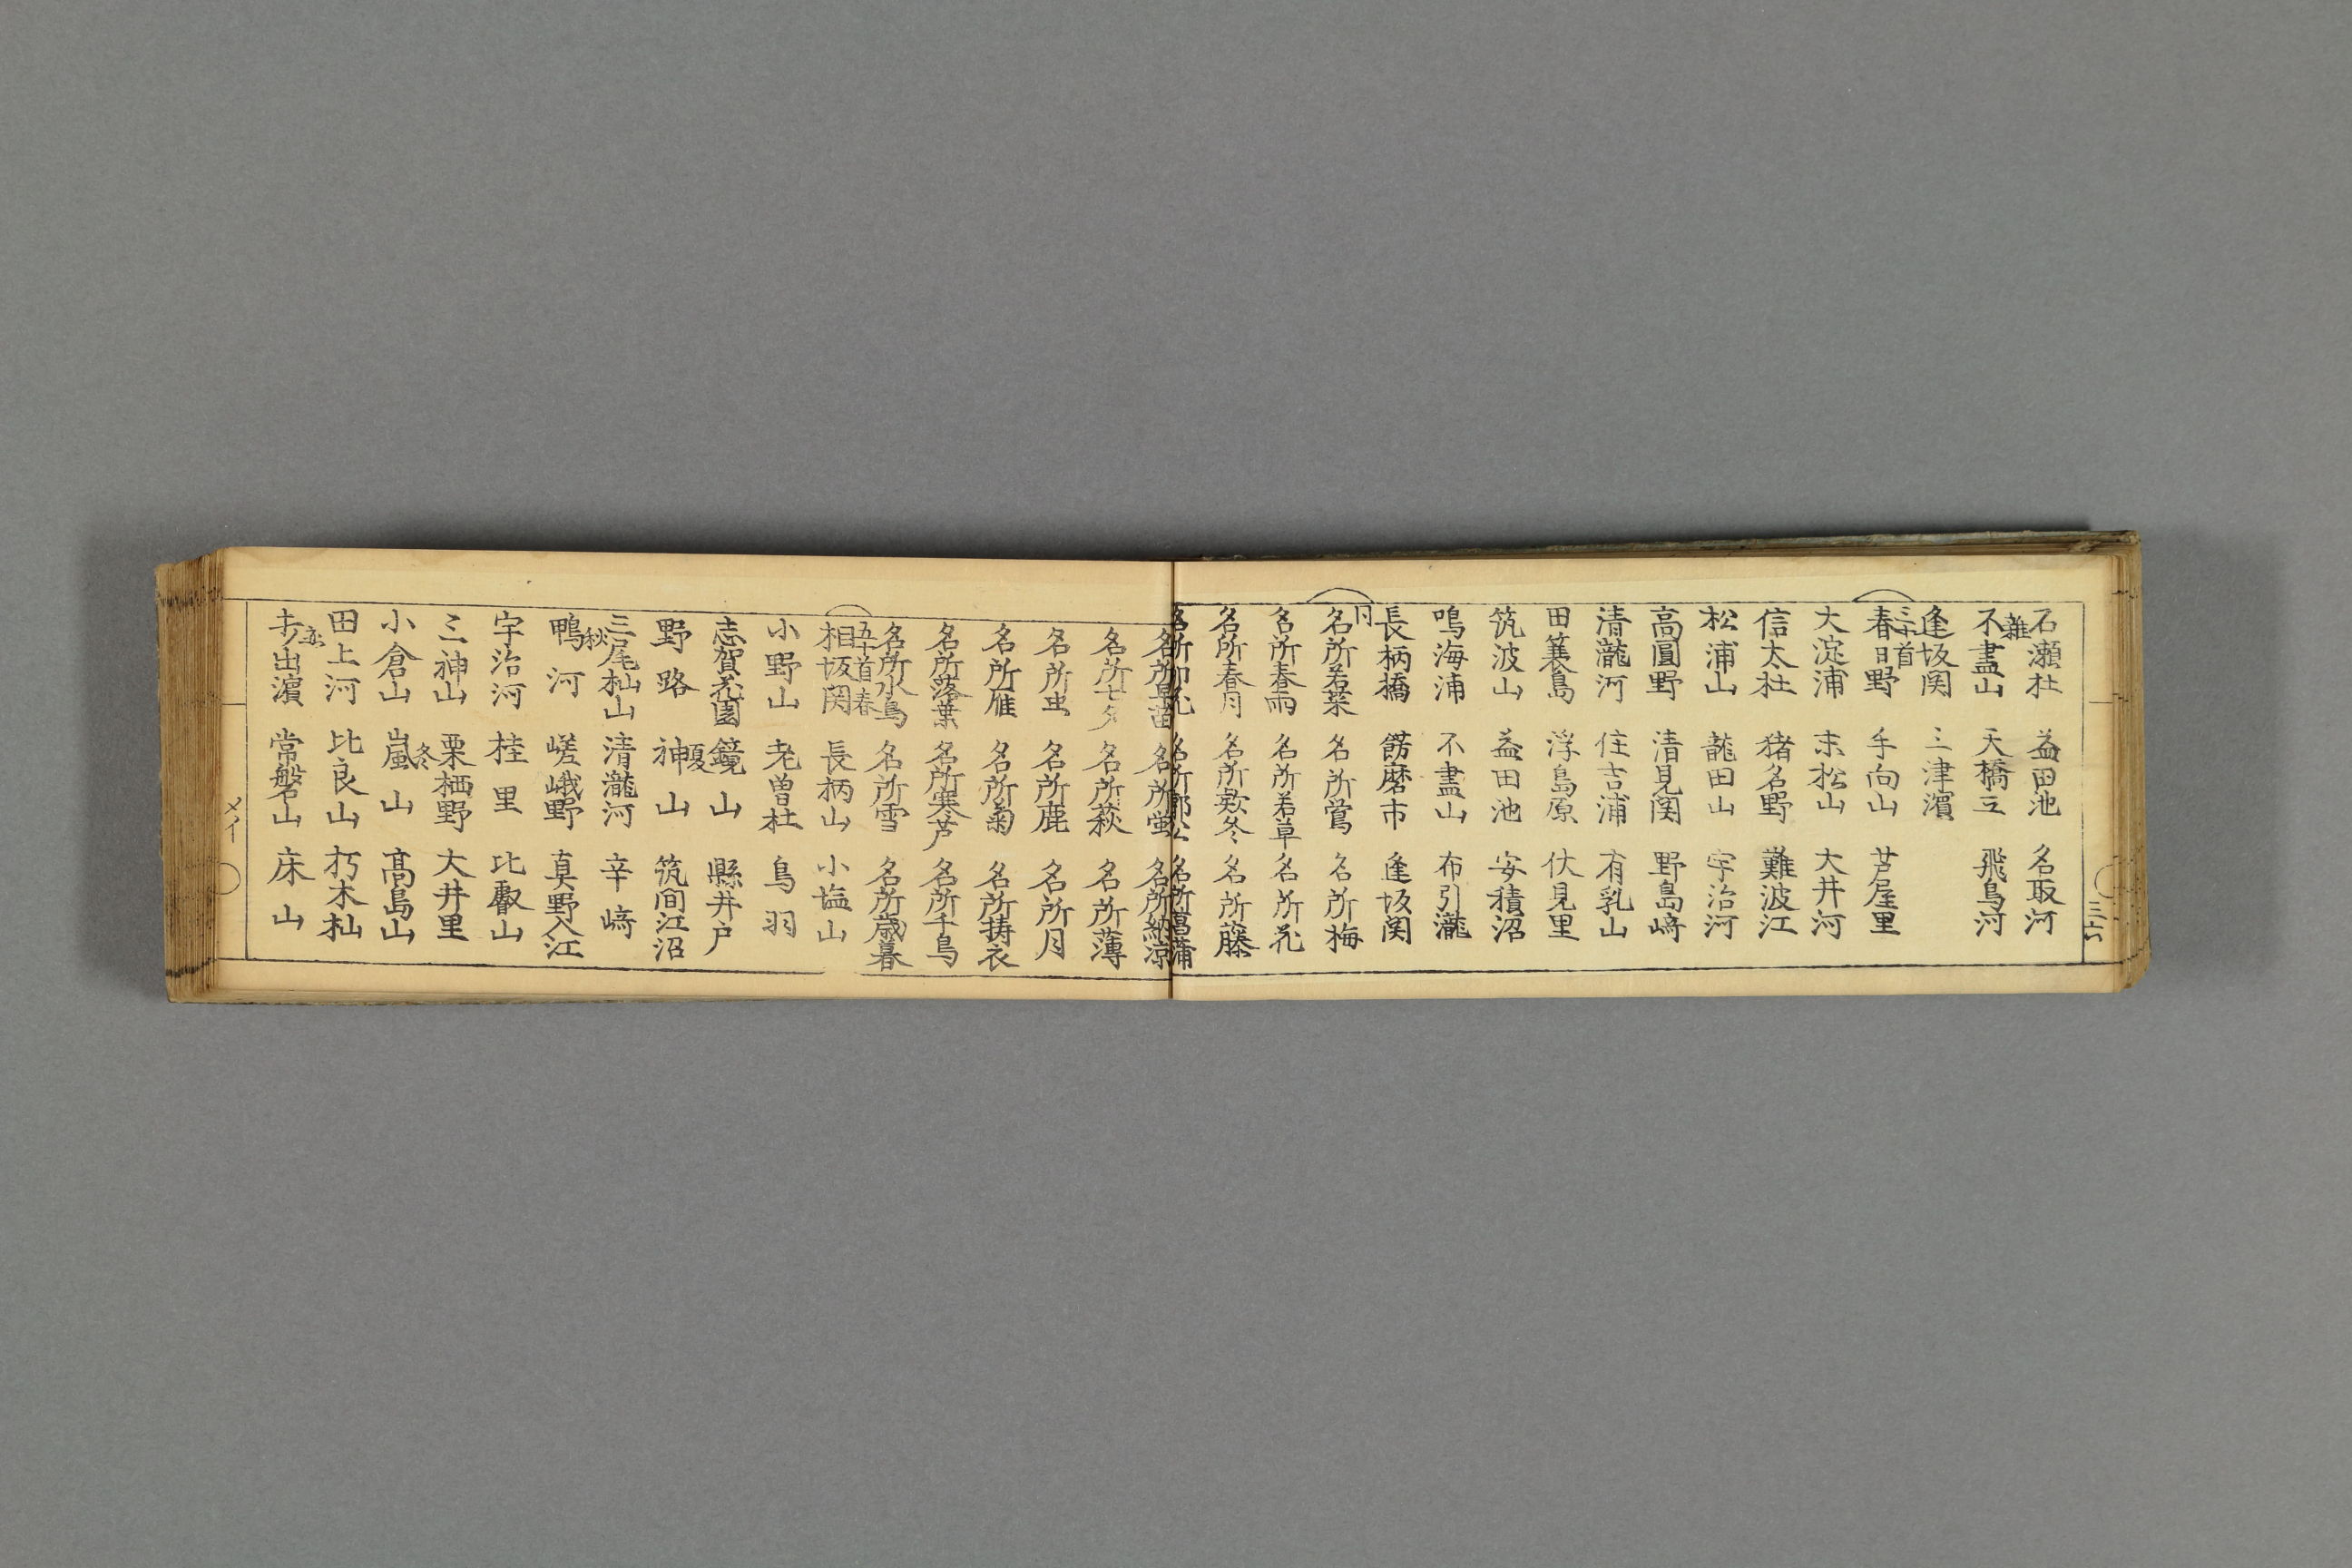 石瀬杜 益田池 名取河
雑
不盡山 天橋立 飛鳥河
逢坂関 三津濱
三十首
春日野 手向山 芦屋里
大淀浦 末松山 大井河
信太杜 猪名野 難波江
松浦山 龍田山 宇治河
高圓野 清見関 野島﨑
清瀧河 住吉浦 有乳山
田簑島 浮島原 伏見里
筑波山 益田池 安積沼
鳴海浦 不盡山 布引瀧
長柄橋 餝磨市 逢坂関
同
名所若菜 名所鶯 名所梅
名所春雨 名所若草 名所花
名所春月 名所欵冬 名所藤
名所卯花 名所郭公 名所菖蒲
三六
名所早苗 名所螢 名所納涼
名所七夕 名所萩 名所薄
名所虫 名所鹿 名所月
名所雁 名所菊 名所擣衣
名所落葉 名所寒芦 名所千鳥
名所水鳥 名所雪 名所歳暮
五十首春
相坂関 長柄山 小塩山
小野山 老曽杜 鳥羽
志賀花園 鏡山 縣井戸
夏
野路 神山 筑間江沼
三尾杣山 清瀧河 辛﨑
秋
鴨河 嵯峨野 真野入江
宇治河 桂里 比叡山
三神山 栗栖野 大井里
冬
小倉山 嵐山 高島山
田上河 比良山 朽木杣
恋
打出濱 常磐山 床山
メイ